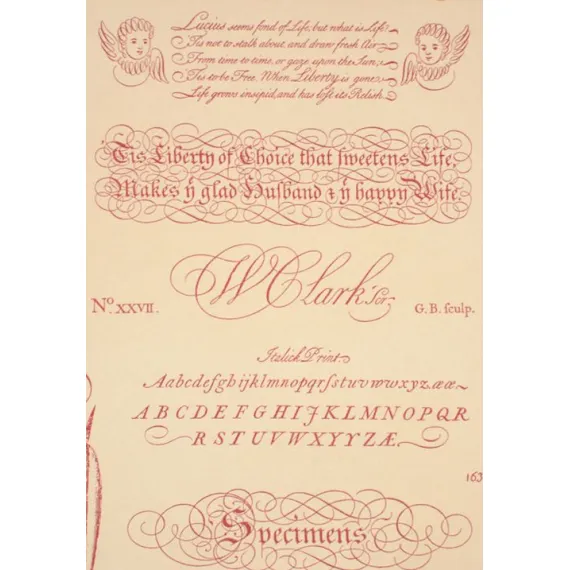 Lucius seems fond of Life, but what is Life?
'Tis not to stalk about, and draw fresh Air
From time to time, or gaze upon the Sun;
'Tis to be Free. When Liberty is gone,
Life grows insipid, and has lost its Relish.
'Tis Liberty of Choice that ſweetens Life,
Makes ẏ glad Huſband & ẏ happy Wife.
W Clark Scr.
No. XXVII.
G. B. ſculp.
Italick Print.
Aabcdefghijklmnopqrſstuvwwxyz.ææ
ABCDEFGHIJKLMNOPQR
RSTUVWXYYZÆ.
163
Specimens